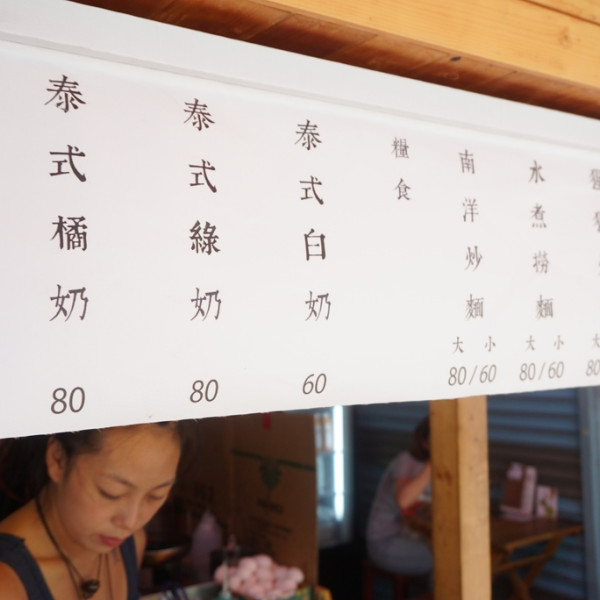 泰式橘奶
80
泰式綠奶
80
泰式白奶
60
糧食
南洋炒麵
大 小
80 / 60
水煮撈麵
大 小
80 / 60
大
80